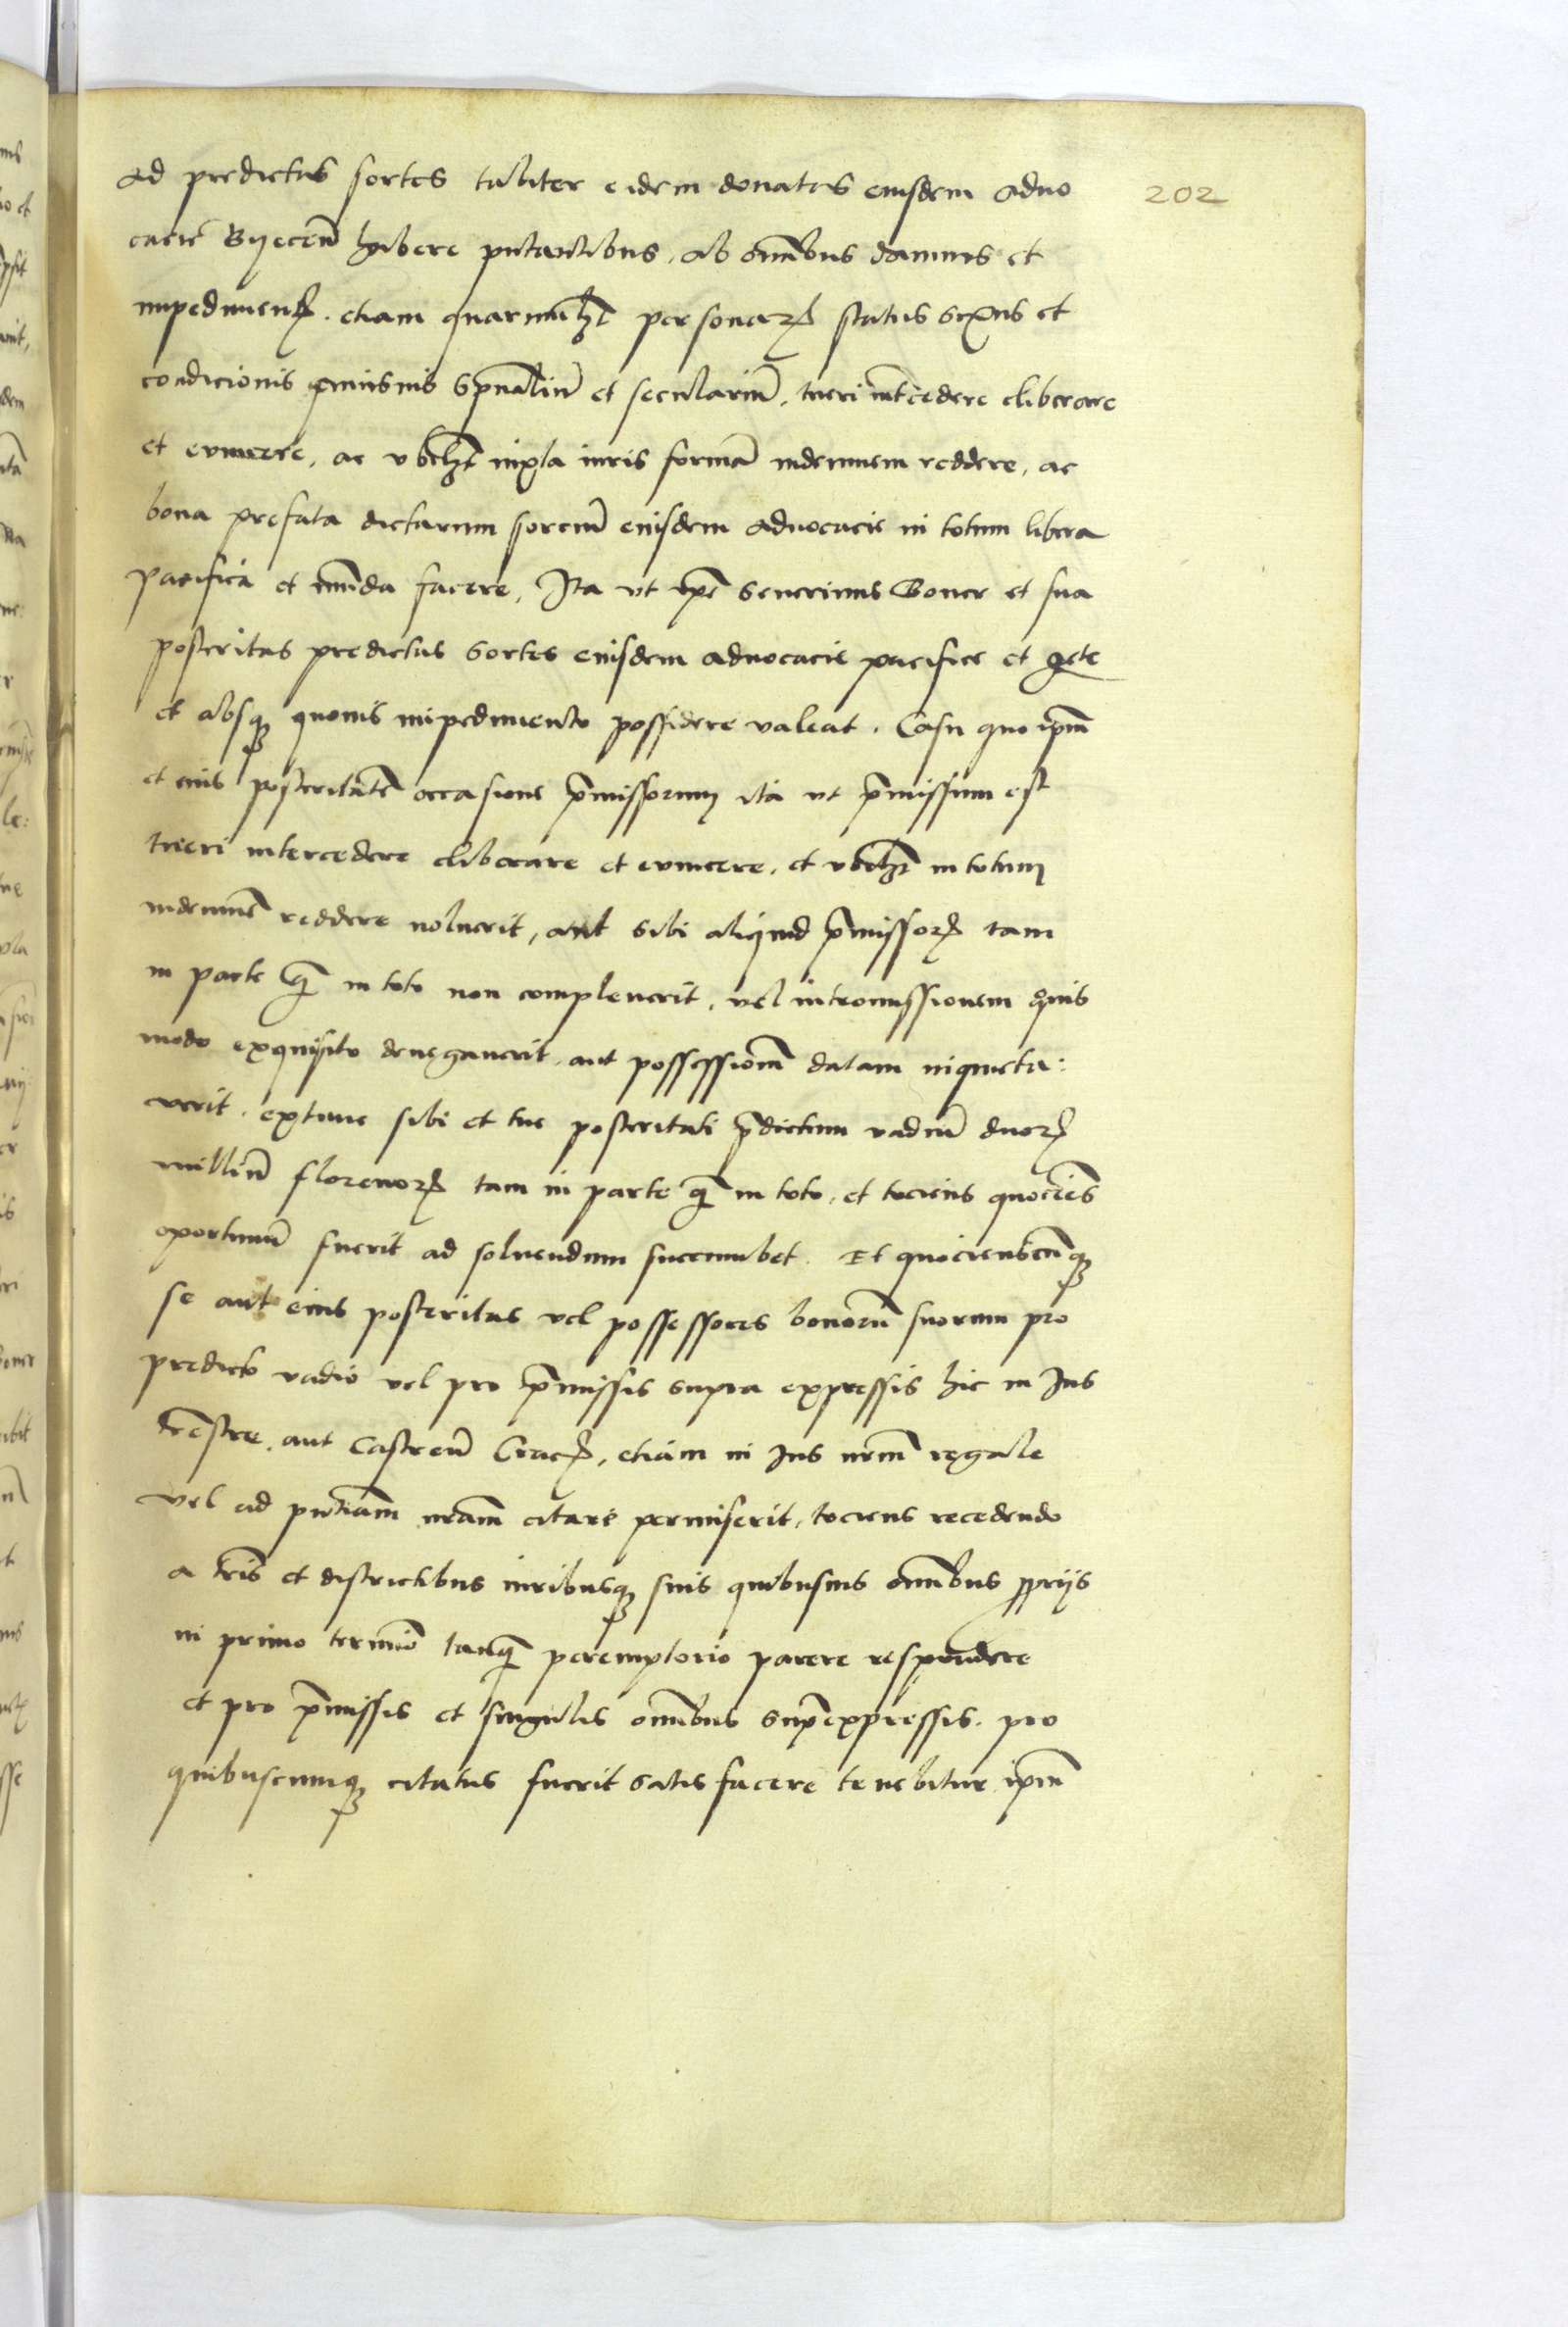 202
ad predictas sortes taliter eidem donatas eiusdem aduo
cacie Byecen̄ habere putantibus, ab om̄ibus damnis et
impedimenꝭ. etiam quarumlꝫt personaꝝ status sexus et
condicionis cuiusuis sp̄ualiū et seculariū, tueri int̄cedere eliberare
et euincere, ac vbilꝫt iuxta iuris formā indemnem reddere, ac
bona prefata dictarum sorciū eiusdem aduocacie in totum libera
pacifica et mūda facere, Ita vt ip̄e Seuerinus Boner et sua
posteritas predictas Sortes eiusdem aduocacie pacifice et qete
et absqꝫ quouis impedimento possidere valeat. Casu quo ip̄m
et eius posteritatē occasione p̄missorum ita vt p̄missum est
tueri intercedere eliberare et euincere, et vbilꝫt in totum
indemnē reddere noluerit, aut sibi aliquid p̄missoꝝ tam
in parte q̄ in toto non compleuerit, vel intromissionem quis
modo exquisito denegauerit, aut possessiom̄ datam inquieta:
verit, extunc sibi et sue posteritati p̄dictum vadiū duoꝝ
milliū florenoꝝ tam in parte q̄ in toto, et tociens quociēs
oportunū fuerit ad soluendum succumbet. Et quocienscūqꝫ
se aut eius posteritas vel possessores bonorū suorum pro
predicto vadio vel pro p̄missis supra expressis hic in Ius
tr̄estre, aut Castreñ Cracꝭ, etiam in Ius nr̄m regale
vel ad pn̄tiam nr̄am citare permiserit, tociens recedendo
a tr̄is et districtibus iuribusqꝫ suis quibusuis om̄ibus ꝓprijs
in primo termio tanq̄ peremptorio parere respondere
et pro p̄missis et singulis om̄ibus sup̄expressis. pro
quibuscumqꝫ citatus fuerit satisfacere tenebitur ip̄m